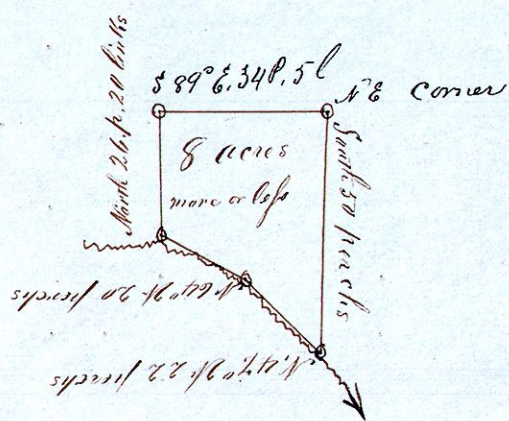 S 89° E. 34 P. 5 l
N E corner
North 26. p. 20 links
8 acres
more or less
South 50 perchs
N 64° W 20 perchs
N. 47° W 22 perchs